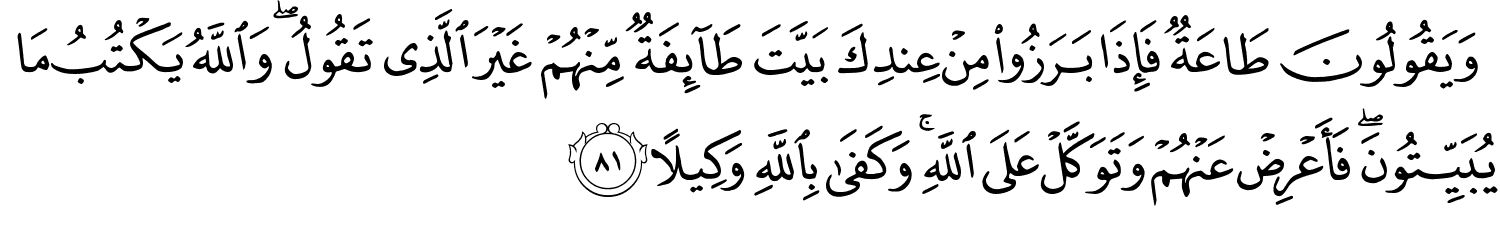 وَيَقُولُونَ طَاعَةٌ فَإِذَا بَرَزُوا۟ مِنْ عِندِكَ بَيَّتَ طَآئِفَةٌ مِّنْهُمْ غَيْرَ ٱلَّذِى تَقُولُ ۖ وَٱللَّهُ يَكْتُبُ مَا
يُبَيِّتُونَ ۖ فَأَعْرِضْ عَنْهُمْ وَتَوَكَّلْ عَلَى ٱللَّهِ ۚ وَكَفَىٰ بِٱللَّهِ وَكِيلًا ٨١